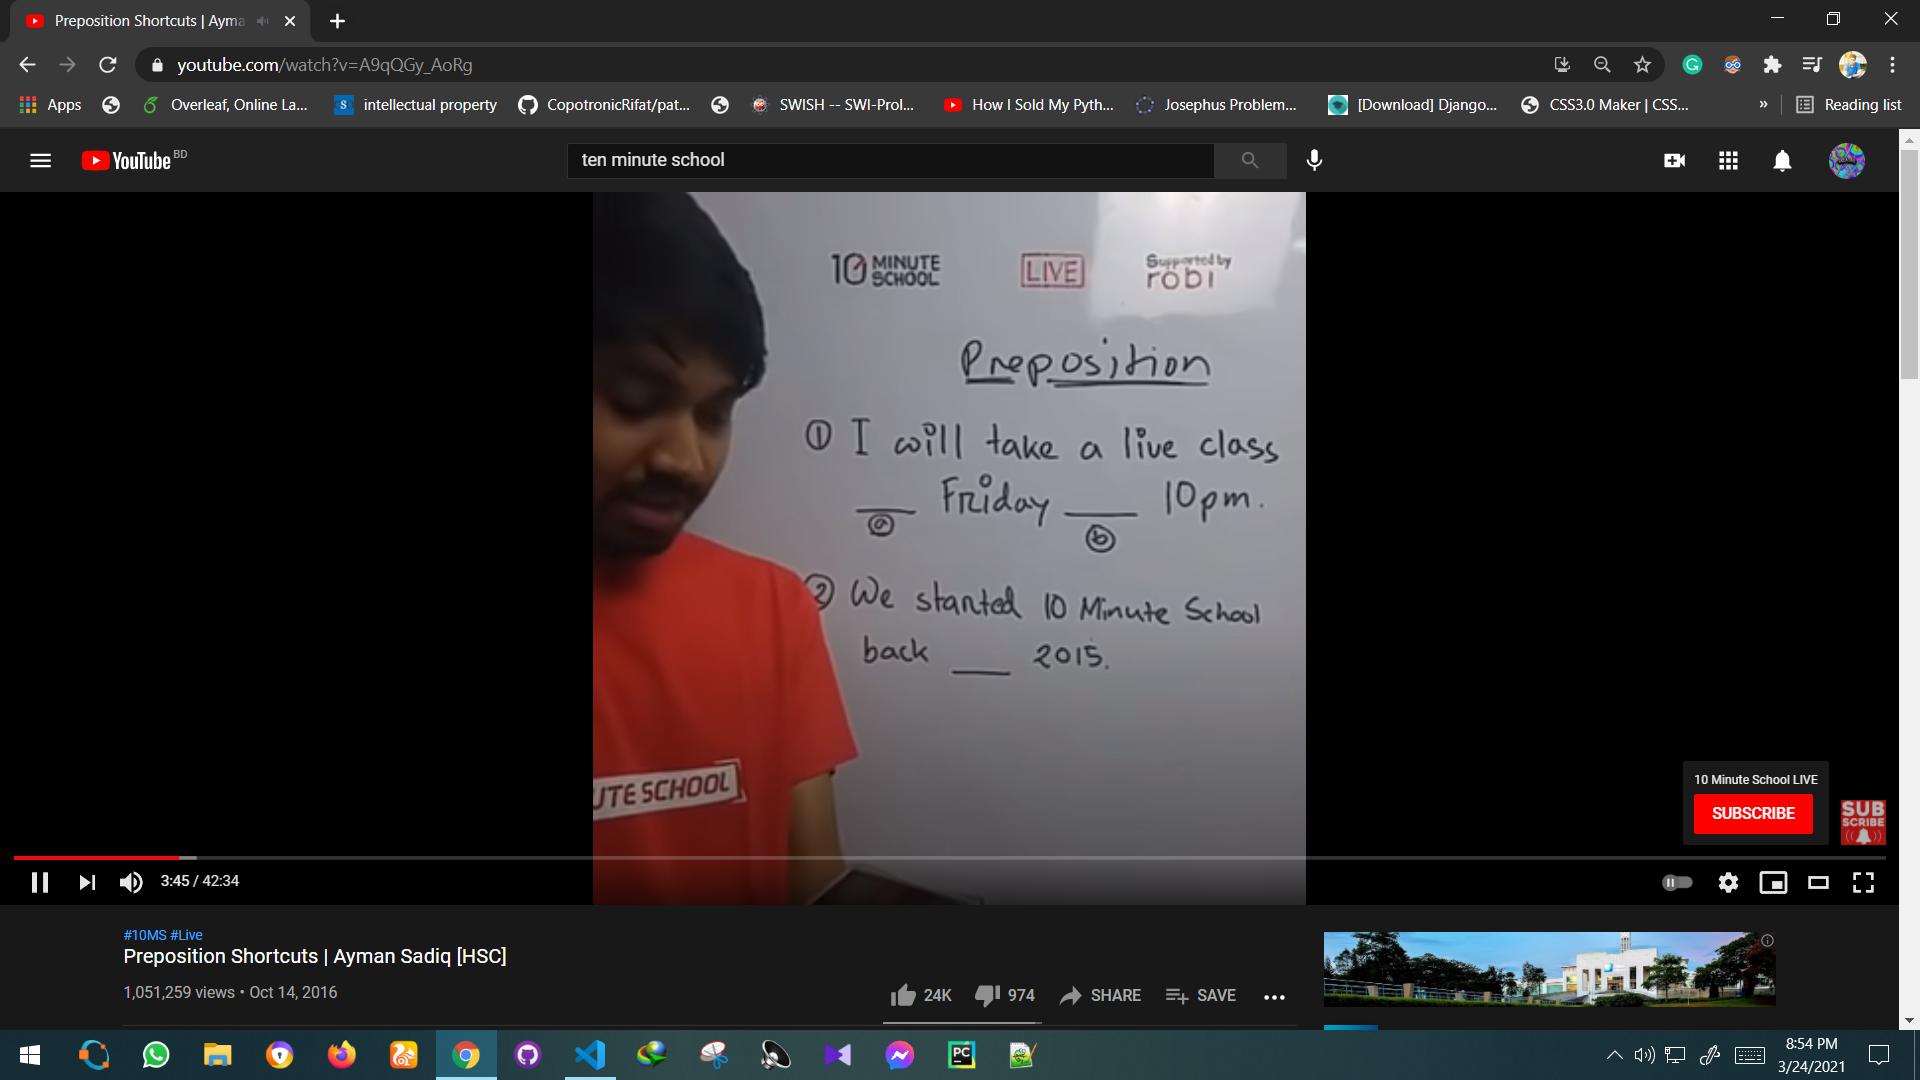 Preposition Shortcuts | Ayma
youtube.com/watch?v=A9qQGy_AoRg
Apps Overleaf, Online La... intellectual property CopotronicRifat/pat... SWISH -- SWI-Prol... How I Sold My Pyth... Josephus Problem... [Download] Django... CSS3.0 Maker | CSS... » Reading list
YouTube BD ten minute school
10 MINUTE SCHOOL LIVE Supported by robi
Preposition
① I will take a live class
___ Friday ___ 10pm.
ⓐ ⓑ
② We started 10 Minute School
back ___ 2015.
UTE SCHOOL
10 Minute School LIVE
SUBSCRIBE SUB SCRIBE
3:45 / 42:34
#10MS #Live
Preposition Shortcuts | Ayman Sadiq [HSC]
1,051,259 views • Oct 14, 2016 24K 974 SHARE SAVE
PC
8:54 PM
3/24/2021